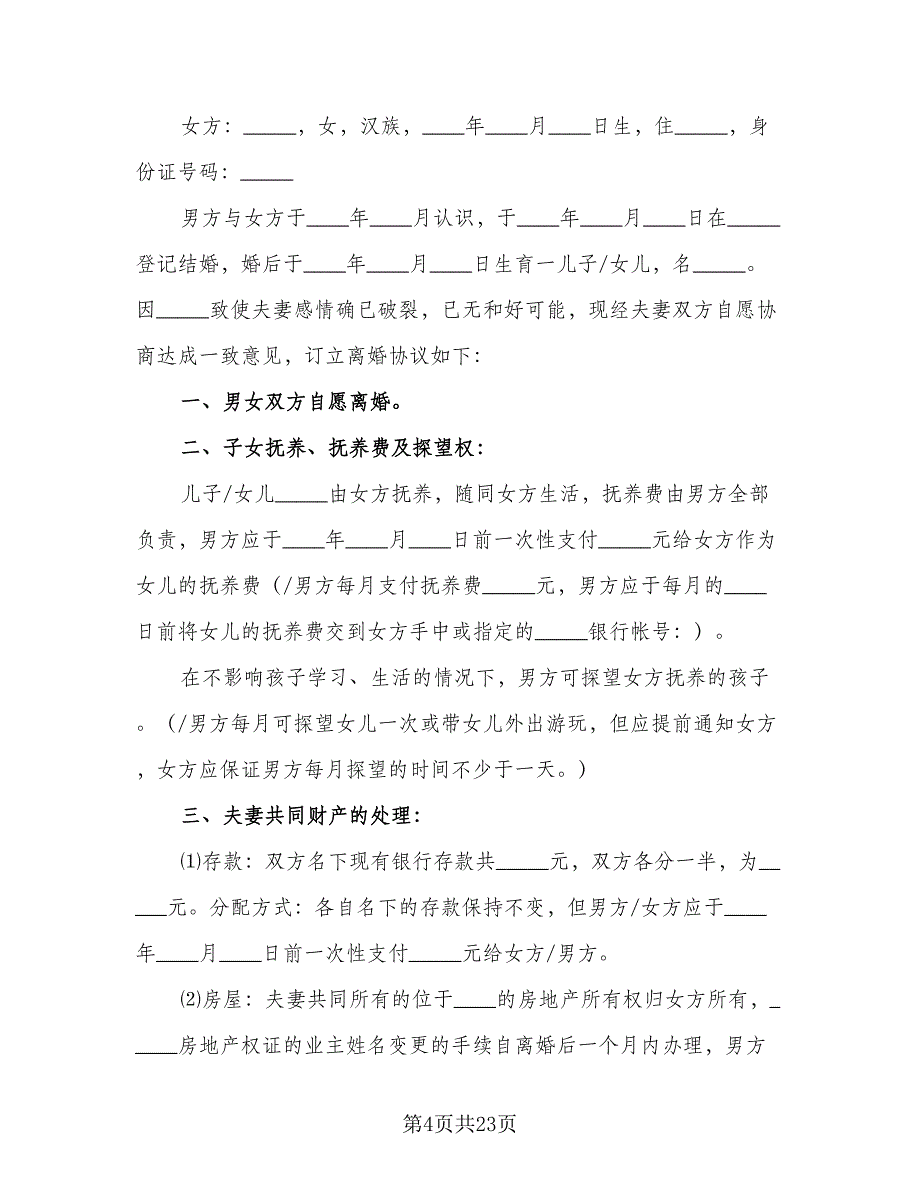 女方：_____，女，汉族，____年____月____日生，住_____，身
份证号码：_____
男方与女方于____年____月认识，于____年____月____日在_____
登记结婚，婚后于____年____月____日生育一儿子/女儿，名_____。
因_____致使夫妻感情确已破裂，已无和好可能，现经夫妻双方自愿协
商达成一致意见，订立离婚协议如下：
一、男女双方自愿离婚。
二、子女抚养、抚养费及探望权：
儿子/女儿_____由女方抚养，随同女方生活，抚养费由男方全部
负责，男方应于____年____月____日前一次性支付_____元给女方作为
女儿的抚养费（/男方每月支付抚养费_____元，男方应于每月的____
日前将女儿的抚养费交到女方手中或指定的_____银行帐号：）。
在不影响孩子学习、生活的情况下，男方可探望女方抚养的孩子
。（/男方每月可探望女儿一次或带女儿外出游玩，但应提前通知女方
，女方应保证男方每月探望的时间不少于一天。）
三、夫妻共同财产的处理：
⑴存款：双方名下现有银行存款共_____元，双方各分一半，为__
___元。分配方式：各自名下的存款保持不变，但男方/女方应于____
年____月____日前一次性支付_____元给女方/男方。
⑵房屋：夫妻共同所有的位于____的房地产所有权归女方所有，_
____房地产权证的业主姓名变更的手续自离婚后一个月内办理，男方
第4页共23页